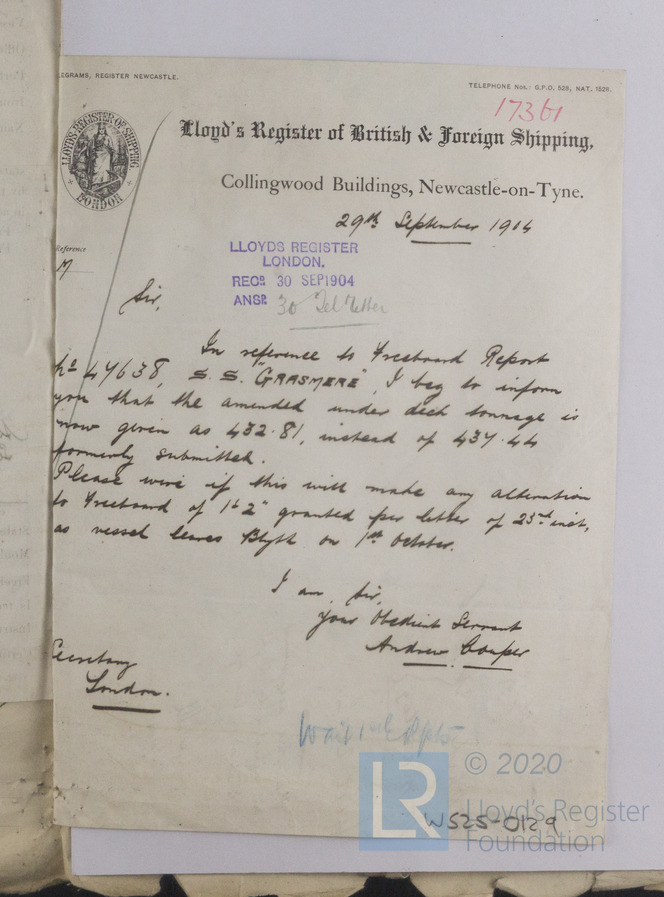 LEGRAMS, REGISTER NEWCASTLE.
TELEPHONE Nos.: G.P.O. 528, NAT. 1926.
17361
LLOYD'S REGISTER OF SHIPPING
LONDON
Lloyd's Register of British & Foreign Shipping,
Collingwood Buildings, Newcastle-on-Tyne.
29th September 1904
LLOYDS REGISTER
LONDON.
RECD. 30 SEP 1904
ANSD. 30 Tel Letter
Reference
M
Sir,
In reference to Freeboard Report
No 47638, S.S. "GRASMERE", I beg to inform
you that the amended under deck tonnage is
now given as 432.81, instead of 437.44
formerly submitted.
Please wire if this will make any alteration
to Freeboard of 1ft 2" granted per letter of 23rd inst,
as vessel leaves Blyth on 1st October.
I am, Sir,
Your Obedient Servant
Andrew Couper
Secretary
London.
W525-0129
© 2020
LR
Lloyd's Register
Foundation